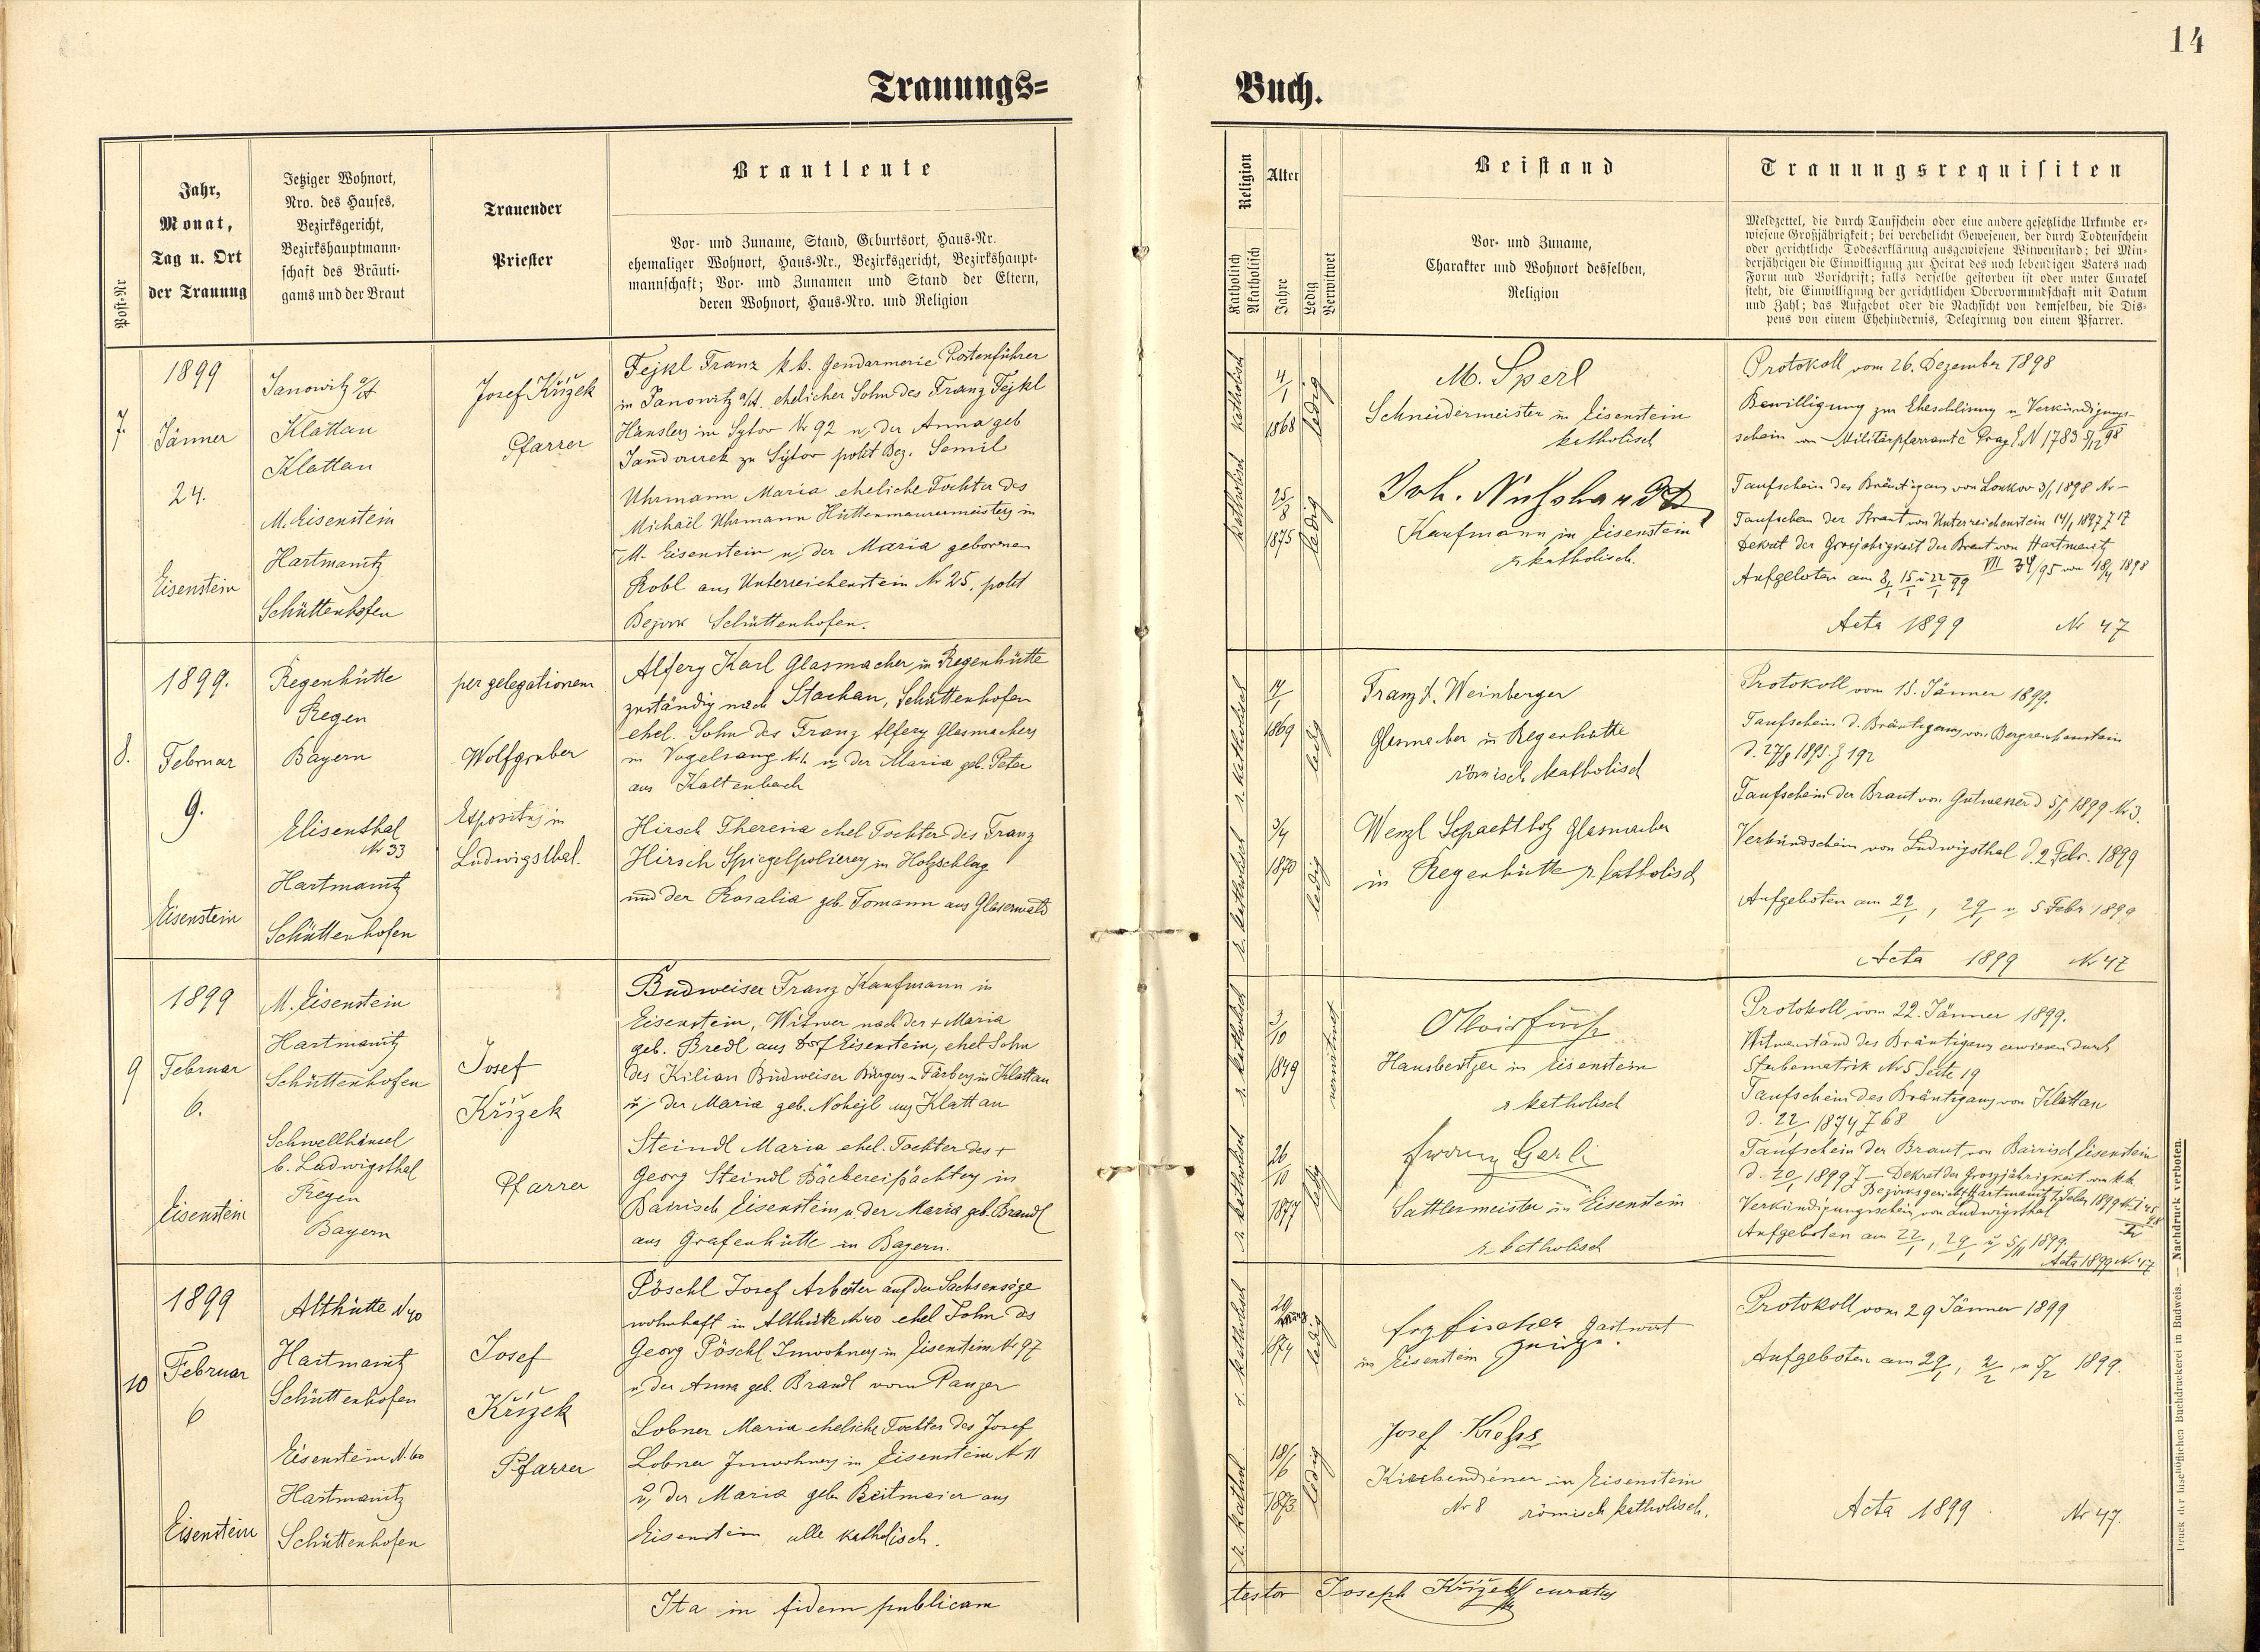 14
Trauungs=
Buch.
Post-Nr
Jahr,
Monat,
Tag u. Ort
der Trauung
Jetziger Wohnort,
Nro. des Hauses,
Bezirksgericht,
Bezirkshauptmann-
schaft des Bräuti-
gams und der Braut
Trauender
Priester
Brautleute
Vor- und Zuname, Stand, Geburtsort, Haus-Nr.
ehemaliger Wohnort, Haus-Nr., Bezirksgericht, Bezirkshaupt-
mannschaft; Vor- und Zunamen und Stand der Eltern,
deren Wohnort, Haus-Nro. und Religion
Religion
Katholisch
Akatholisch
Alter
Jahre
Ledig
Verwitwet
Beistand
Vor- und Zuname,
Charakter und Wohnort desselben,
Religion
Trauungsrequisiten
Meldzettel, die durch Taufschein oder eine andere gesetzliche Urkunde er-
wiesene Großjährigkeit; bei verehelicht Gewesenen, der durch Todtenschein
oder gerichtliche Todeserklärung ausgewiesene Witwenstand; bei Min-
derjährigen die Einwilligung zur Heirat des noch lebendigen Vaters nach
Form und Vorschrift; falls derselbe gestorben ist oder unter Curatel
steht, die Einwilligung der gerichtlichen Obervormundschaft mit Datum
und Zahl; das Aufgebot oder die Nachsicht von demselben, die Dis-
pens von einem Ehehindernis, Delegirung von einem Pfarrer.
7.
1899
Jänner
24.
Eisenstein
Janowitz a/A
Klattau
Klattau
M. Eisenstein
Hartmanitz
Schüttenhofen
Josef Křížek
Pfarrer
Fejkl Franz k.k. Gendarmerie Postenführer
in Janowitz a/A. ehelicher Sohn des Franz Fejkl
Häuslers in Sytov Nr 92 u. der Anna geb
zu Sytov polit Bez. Semil
Uhrmann Maria eheliche Tochter des
Michaël Uhrmann Hüttenmaurermeisters in
M. Eisenstein u. der Maria geborenen
Robl aus Unterreichenstein Nr 25. polit
Bezirk Schüttenhofen.
katholisch
4/1
1868
ledig
katholisch
25/8
1875
ledig
M. Sperl
Schneidermeister in Eisenstein
katholisch
Joh.
Kaufmann in Eisenstein
r katholisch.
Protokoll vom 26. Dezember 1898
Bewilligung zur Eheschließung u. Verkündigungs-
schein vom Militärpfarramte Prag E.N 1783 5/12 98
Taufschein des Bräutigams von Loukov 3/1 1898 Nr –
Taufschein der Braut von Unterreichenstein 14/1 1897 J 17
Dekret der Grosjährigkeit der Braut von Hartmanitz
VII 34/95 von 18/4 1898
Aufgeboten am 8/1 15/1 u 22/1 99
Acta 1899 Nr 47
8.
1899.
Februar
9.
Eisenstein
Regenhütte
Regen
Bayern
Elisenthal
Nr 33
Hartmanitz
Schüttenhofen
per gelegationem
Wolfgruber
Expositus in
Ludwigsthal.
Alfery Karl Glasmacher in Regenhütte
zuständig nach Stachau, Schüttenhofen
ehel. Sohn des Franz Alfery Glasmachers
in Vogelsang Nr 1. u. der Maria geb. Peter
aus Kaltenbach
Hirsch Theresia ehel Tochter des Franz
Hirsch Spiegelpolierers in Holzschlag
und der Rosalia geb Tomann aus Glaserwald
r. katholisch
1869
ledig
r. katholisch
3/4
1870
ledig
Franz X. Weinberger
Glasmacher in Regenhütte
römisch katholisch
Wenzl Glasmacher
in Regenhütte r. katholisch
Protokoll vom 15. Jänner 1899.
Taufschein d. Bräutigams von Bergreichenstein
d. 27/8 1895. J 192
Taufschein der Braut von Gutwasser d 5/1 1899 Nr 3.
Verkündschein von Ludwigsthal d. 2 Febr. 1899
Aufgeboten am 22/1, 29/1 u. 5 Febr 1899
Acta 1899 Nr 47
9
1899
Februar
6.
Eisenstein
M. Eisenstein
Hartmanitz
Schüttenhofen
Schwellhäusel
b. Ludwigsthal
Regen
Bayern
Josef
Křížek
Pfarrer
Budweiser Franz Kaufmann in
Eisenstein, Witwer nach der + Maria
geb. Bredl aus Dorf Eisenstein, ehel Sohn
des Kilian Budweiser Bürgers u. Färbers in Klattau
u. der Maria geb. Nohejl aus Klattau
Steindl Maria ehel. Tochter des +
Georg Steindl Bäckereipächters in
Bairisch Eisenstein u. der Maria geb. Brandl
aus Grafenhütte in Bayern.
r katholisch
3/10
1849
verwitwet
r katholisch
26/10
1877
ledig
Hausbesitzer in Eisenstein
r katholisch
Sattlermeister in Eisenstein
r. katholisch
Protokoll vom 22. Jänner 1899.
Witwenstand des Bräutigams erwiesen durch
Sterbematrik Nr 5 Seite 19
Taufschein des Bräutigams von Klattau
d. 22/1 1874 J 68
Taufschein der Braut von Bairisch Eisenstein
d. 20/1 1899 J — Dekret der Groszjährigkeit vom k.k.
Bezirksgericht Hartmanitz 1. Feber 1899
Verkündigungsschein von Ludwigsthal
Aufgeboten am 22/1, 29/1 u. 5/II 1899.
Acta 1899 Nr 47
10
1899
Februar
6
Eisenstein
Althütte N 40
Hartmanitz
Schüttenhofen
Eisenstein N. 60
Hartmanitz
Schüttenhofen
Josef
Křížek
Pfarrer
Pöschl Josef Arbeiter auf der Sachsensäge
wohnhaft in Althütte Nr 40 ehel Sohn des
Georg Pöschl Inwohners in Eisenstein Nr 97
u. der Anna geb. Brandl vom Panzer
Lobner Maria eheliche Tochter des Josef
Lobner Inwohners in Eisenstein Nr 11
u. der Maria geb. Reitmaier aus
Eisenstein alle katholisch.
r. katholisch
20/März
1874
ledig
r. kathol
18/6
1873
ledig
frz fischer Gastwirt
in Eisenstein
Josef Kreß
Kirchendiener in Eisenstein
Nr 8 römisch katholisch.
Protokoll vom 29 Jänner 1899
Aufgeboten am 29/1, 2/2, u 5/2 1899.
Acta 1899 Nr 47.
Ita in fidem publicam
testor Joseph Křížek curatus
Druck der bischöflichen Buchdruckerei in Budweis. — Nachdruck verboten.